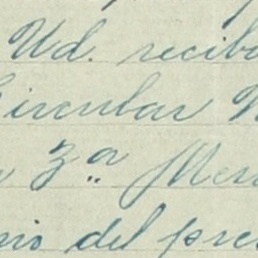 Ud. recib
Circular N
3ª Mer
nio del pre